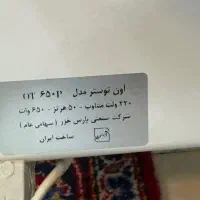 اون توستر مدل OT ۶۵۰P
۲۲۰ ولت متناوب - ۵۰ هرتز - ۶۵۰ وات
شرکت صنعتی پارس خزر (سهامی عام)
ساخت ایران